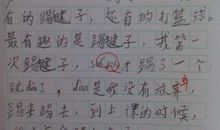 有的踢毽子，还有的打篮球，
最有趣的是踢毽子 我第一
次踢毽子，才踢了一个
dan是我没有放弃
踢来踢去，到上课的时候，